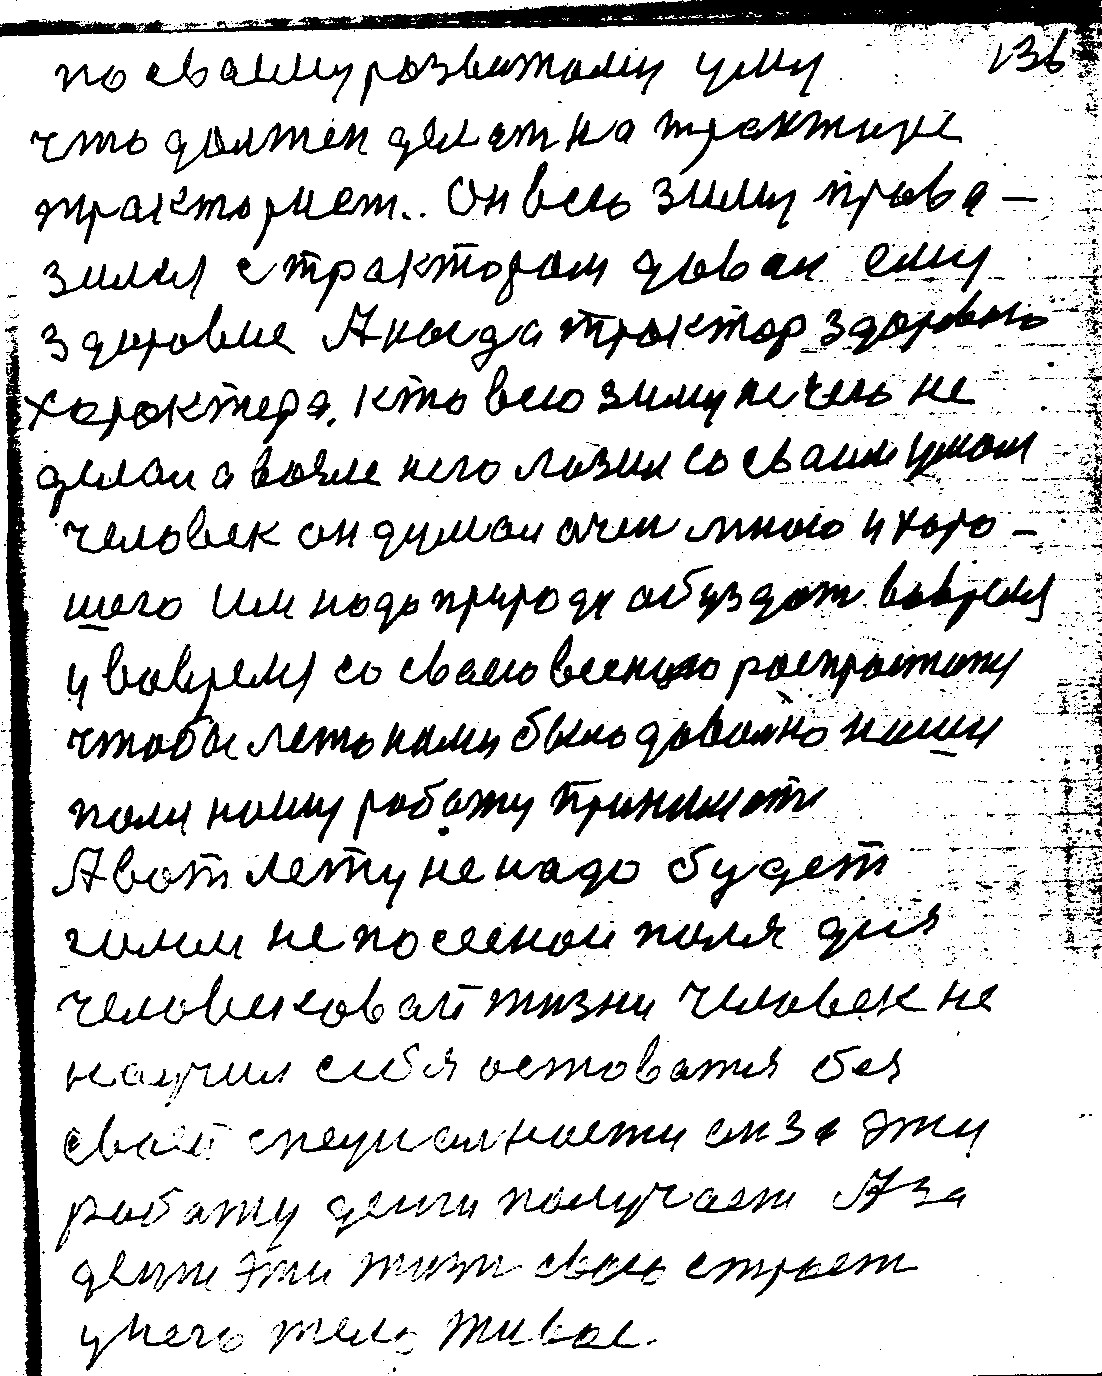 136
по сваему розвитому уму
что должен делат на тракторе
тракторист.. Он всю зиму прова-
зился с трактором довал ему
здоровие А когда трактор здорового
характера. кто всю зиму нечего не
делал а возле него лазил со сваим умом
человек он думал очен много и хоро-
шого Им надо природу обуздат вовремя
и вовремя со сваею весною роспростится
чтобы лето нами было доволно наши
поля нашу работу принимати
А вот лету не надо будет
голыи непосеенои поля для
человековай жизни человек не
научил себя оставатся без
сваей специалности он за эту
работу денги получает А за
денги эти жизн сваю строет
у него тело живое.